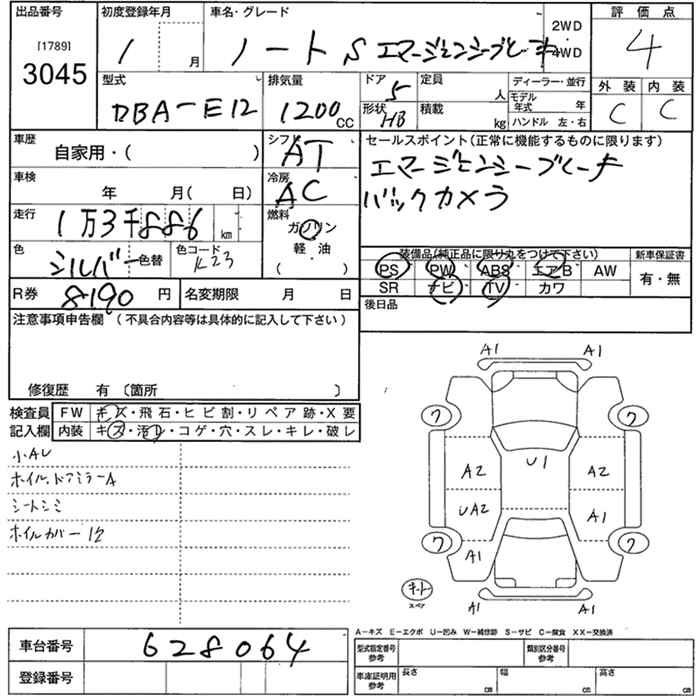 出品番号 初度登録年月 車名・グレード 評価点
[1789]
3045
1 月 ノート S エマージェンシーブレーキ 2WD 4WD 4
型式 排気量 ドア 定員 ディーラー・並行 外装 内装
DBA-E12 1200 CC 5 人 モデル年式 年 C C
形状 HB 積載 kg ハンドル 左・右
車歴 シフト セールスポイント(正常に機能するものに限ります)
自家用・( ) AT エマージェンシーブレーキ
車検 冷房 バックカメラ
年 月( 日) AC
走行 燃料
1万3千886 km ガソリン
軽・油
( )
色 色替 色コード
シルバー K23
装備品(純正品に限り丸をつけて下さい) 新車保証書
PS PW ABS エアB AW 有・無
SR ナビ TV カワ
R券 8190 円 名変期限 月 日 後日品
注意事項申告欄(不具合内容等は具体的に記入して下さい)
修復歴 有〔箇所 〕
検査員 FW キズ・飛石・ヒビ割・リペア跡・X要
記入欄 内装 キズ・汚レ・コゲ・穴・スレ・キレ・破レ
小AU
ホイル.ドアミラーA
シートシミ
ホイルカバー12
A1 A1
ワ ワ
U1
A2 A2
UA2 A1
ワ ワ
A1
キット
スペア
A1 A1
A-キズ E-エクボ U-凹み W-補修跡 S-サビ C-腐食 XX-交換済
車台番号 628064 型式指定番号 参考 類別区分番号 参考
登録番号 車庫証明用 参考 長さ cm 幅 cm 高さ cm